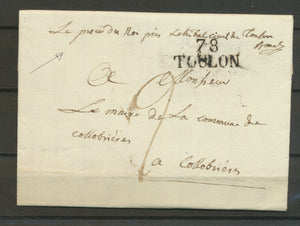 Le proc du Roi près Le tribal civil de Toulon
78
TOULON
A Monsieur
Le maire de La commune de
collobrières
a Collobrières